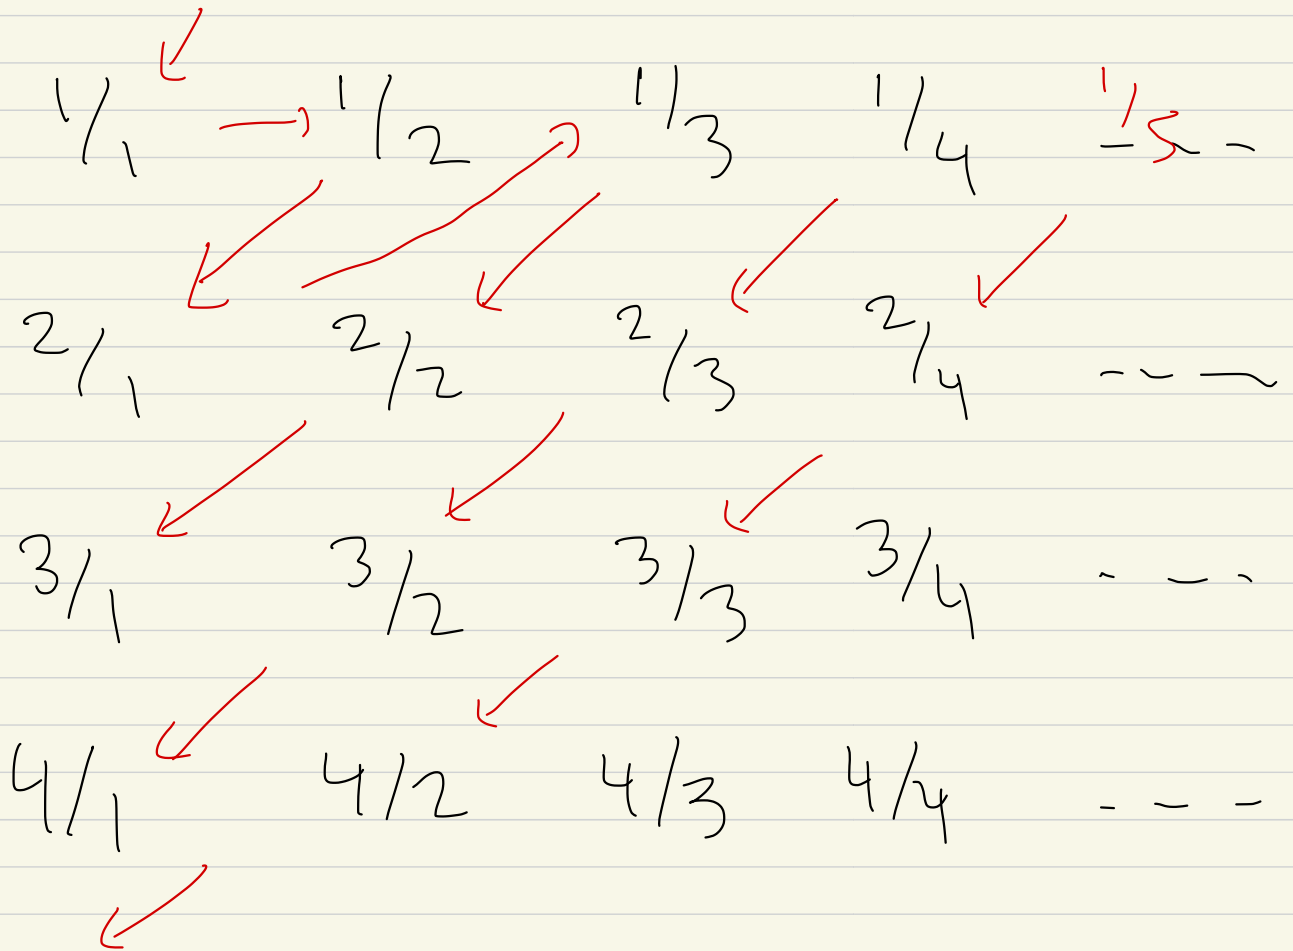 1/1 1/2 1/3 1/4 1/5
2/1 2/2 2/3 2/4
3/1 3/2 3/3 3/4
4/1 4/2 4/3 4/4